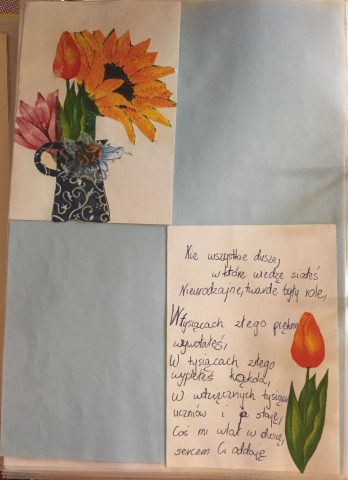 Nie wszystkie dusze,
w które wiedzę siałeś
Nieurodzajne, twarde były role,
W tysiącach złego piękno
wywołałeś,
W tysiącach złego
wyplełeś kąkole,
W wdzięcznych tysiącu
uczniów i ja staję,
Coś mi wlał w duszę,
sercem Ci oddaję